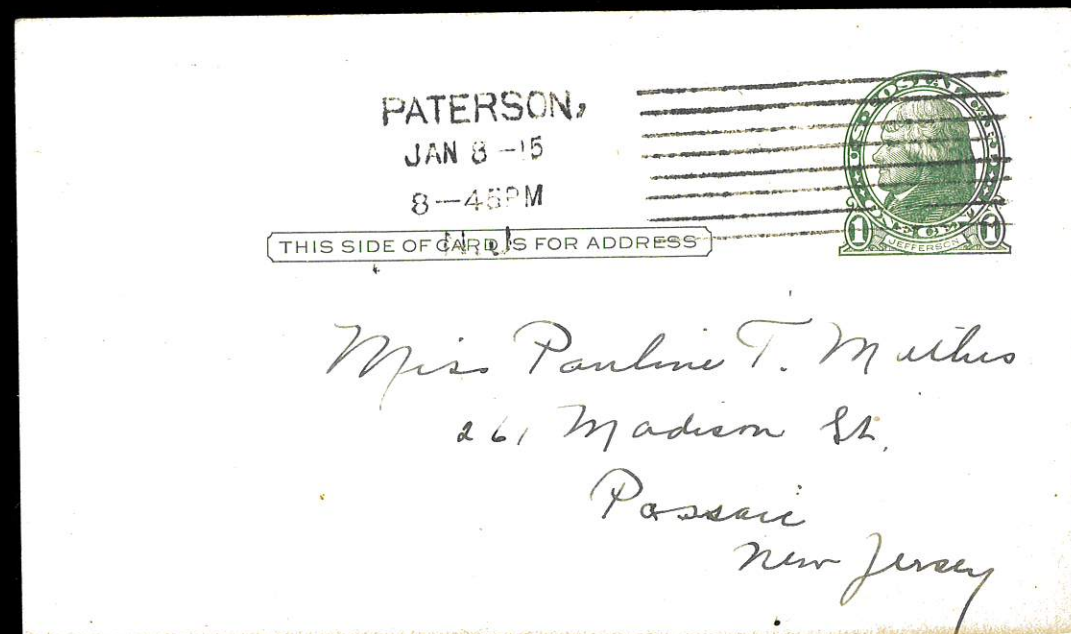 PATERSON,
JAN 8 -15
8-45PM
N.J.
THIS SIDE OF CARD IS FOR ADDRESS
U.S. POSTAGE
1 JEFFERSON 1
Miss Pauline T.
261 Madison St.
Passaic
New Jersey